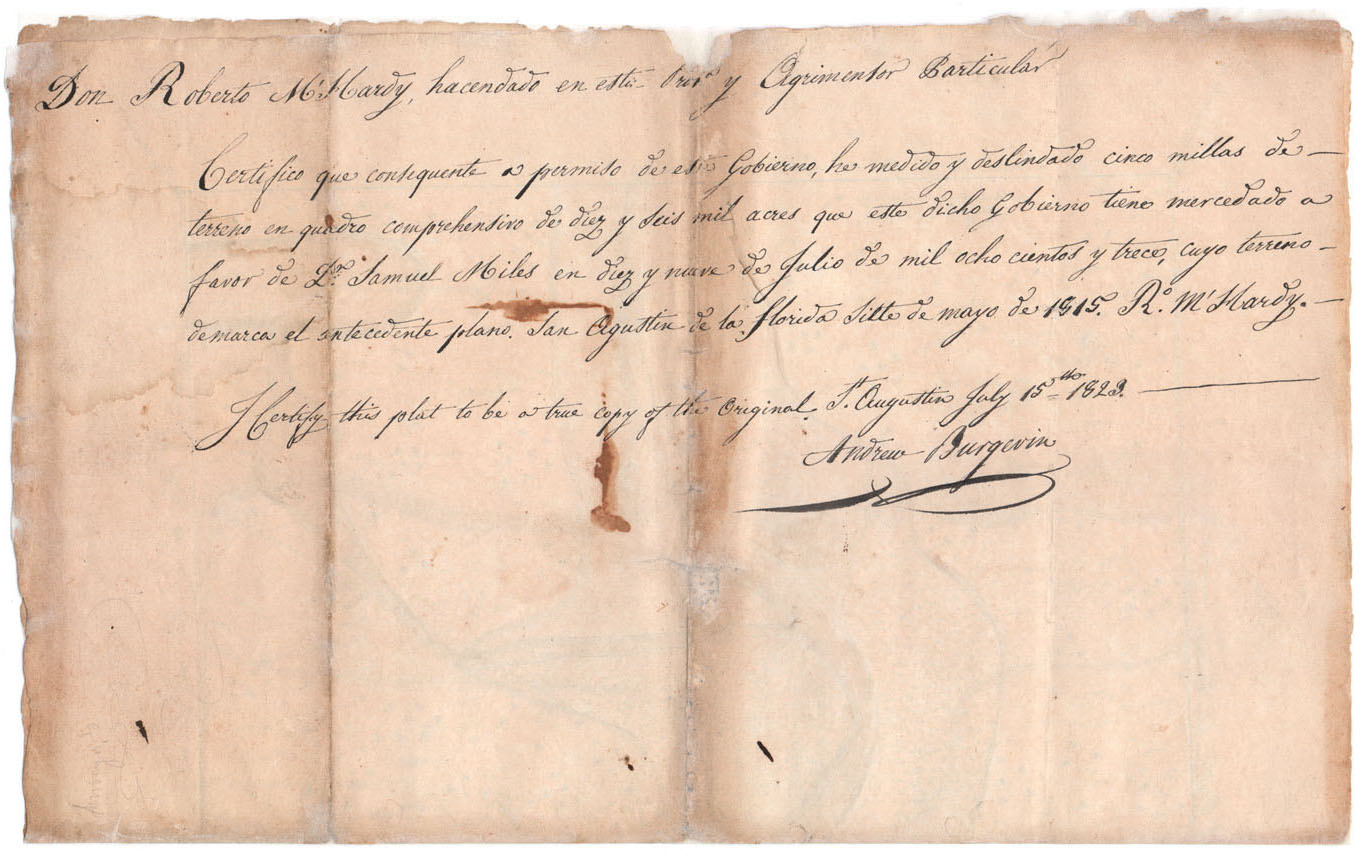 Don Roberto McHardy, hacendado en esta Prova y Agrimensor Particular
Certifico que consequente a permiso de este Gobierno, he medido y deslindado cinco millas de —
terreno en quadro comprehensivo de diez y seis mil acres que este dicho Gobierno tiene mercedado a
favor de Dn. Samuel Miles en diez y nueve de Julio de mil ocho cientos y trece, cuyo terreno —
demarca el antecedente plano. San Agustin de la Florida siete de mayo de 1815. Ro. McHardy. —
I Certify this plat to be a true copy of the Original. St. Augustin July 15th 1823. —
Andrew Burgevin